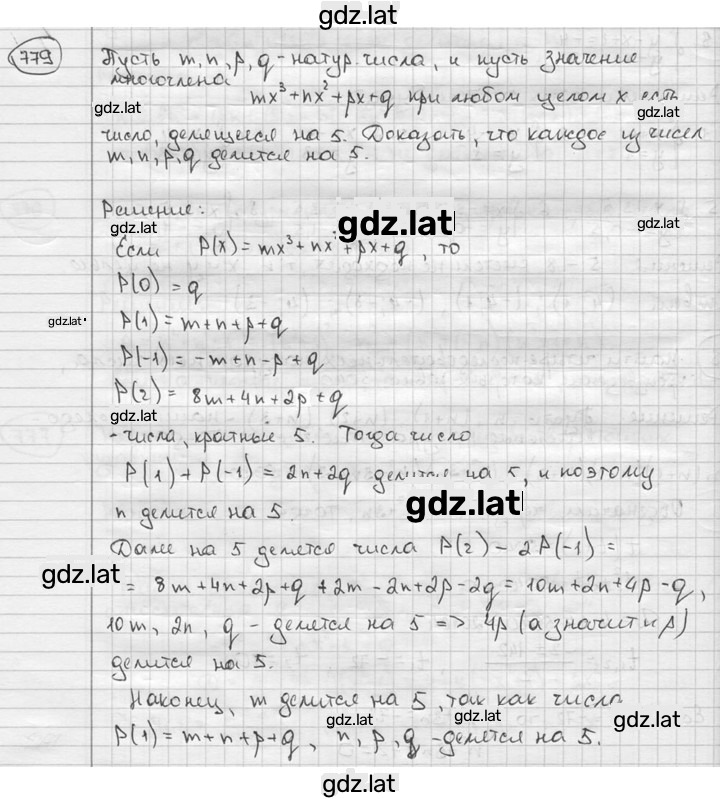 gdz.lat
779
Пусть m, n, p, q - натур. числа, и пусть значение
многочлена
mx³ + nx² + px + q при любом целом x есть
gdz.lat
gdz.lat
число, делящееся на 5. Доказать, что каждое из чисел
m, n, p, q делится на 5.
gdz.lat
Решение:
gdz.lat
gdz.lat
gdz.lat
Если P(x) = mx³ + nx² + px + q, то
P(0) = q
gdz.lat
P(1) = m + n + p + q
P(-1) = -m + n - p + q
P(2) = 8m + 4n + 2p + q
gdz.lat
- числа, кратные 5. Тогда число
P(1) + P(-1) = 2n + 2q делится на 5, и поэтому
gdz.lat
n делится на 5.
Далее на 5 делятся числа P(2) - 2P(-1) =
gdz.lat
= 8m + 4n + 2p + q + 2m - 2n + 2p - 2q = 10m + 2n + 4p - q,
10m, 2n, q - делятся на 5 => 4p (а значит и p)
делится на 5.
Наконец, m делится на 5, так как числа
gdz.lat
gdz.lat
gdz.lat
P(1) = m + n + p + q, n, p, q - делятся на 5.
gdz.lat